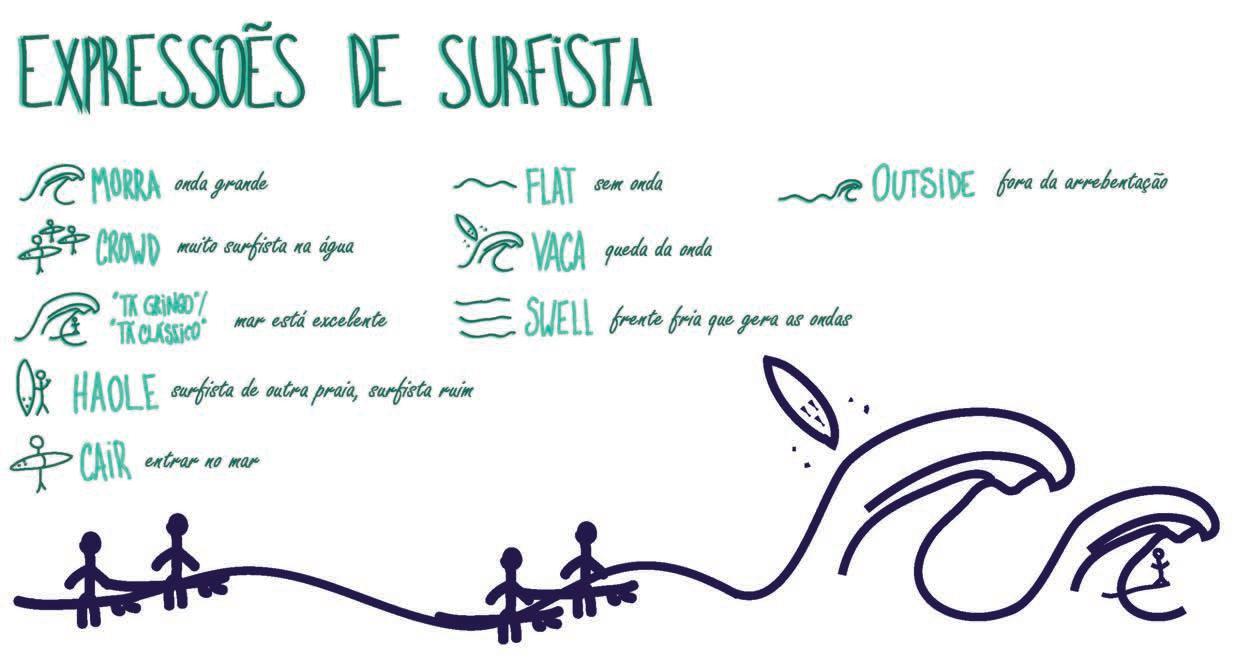 EXPRESSOẼS DE SURFISTA
MORRA onda grande
CROWD muito surfista na água
"TÁ GRINGO"/
"TÁ CLÁSSICO" mar está excelente
HAOLE surfista de outra praia, surfista ruim
CAIR entrar no mar
FLAT sem onda
VACA queda da onda
SWELL frente fria que gera as ondas
OUTSIDE fora da arrebentação